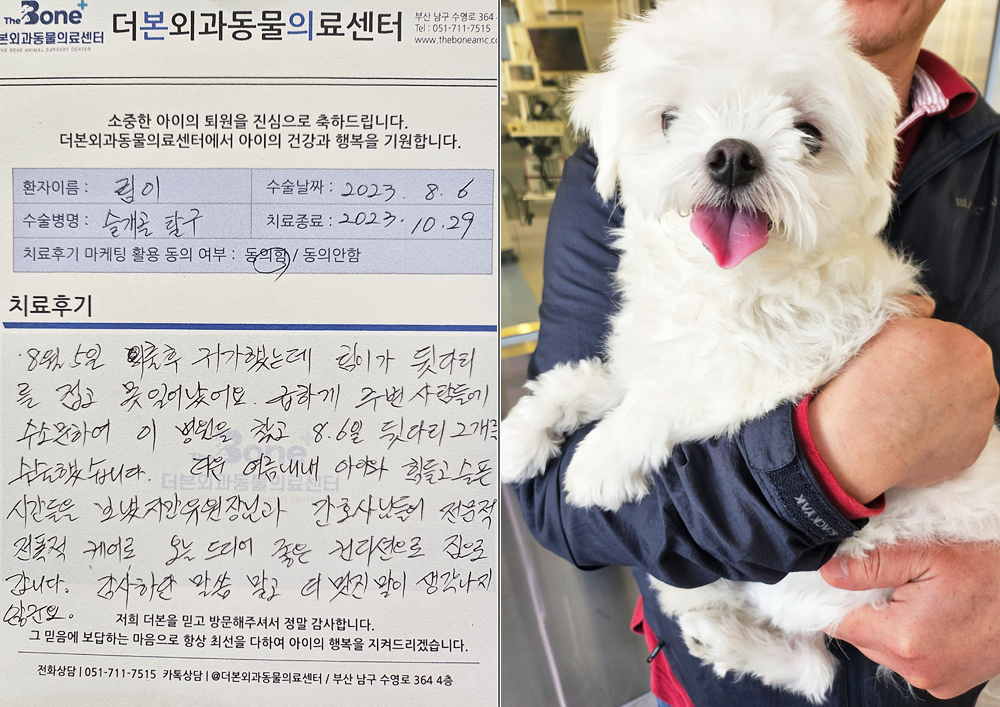 The Bone+
더본외과동물의료센터
본외과동물의료센터
THE BONE ANIMAL SURGERY CENTER
부산 남구 수영로 364
Tel : 051-711-7515
www.theboneamc.co
소중한 아이의 퇴원을 진심으로 축하드립니다.
더본외과동물의료센터에서 아이의 건강과 행복을 기원합니다.
환자이름 : 림이 수술날짜 : 2023. 8. 6
수술병명 : 슬개골 탈구 치료종료 : 2023. 10. 29
치료후기 마케팅 활용 동의 여부 : 동의함 / 동의안함
치료후기
8월 5일 외출후 귀가했는데 림이가 뒷다리
를 접고 못 일어났어요. 급하게 주변 사람들에
수소문하여 이 병원을 찾고 8.6일 뒷다리 2개
수술했습니다. 여름내내 아이와 힘들고 슬픈
시간들을 보냈지만 원장님과 간호사님들의 전문적
케어로 오늘 드디어 좋은 컨디션으로 집으로
갑니다. 감사하단 말씀 말고 더 멋진 말이 생각나지
않건요.
The Bone
더본외과동물의료센터
저희 더본을 믿고 방문해주셔서 정말 감사합니다.
그 믿음에 보답하는 마음으로 항상 최선을 다하여 아이의 행복을 지켜드리겠습니다.
전화상담 | 051-711-7515 카톡상담 | @더본외과동물의료센터 / 부산 남구 수영로 364 4층
BLACK YAK